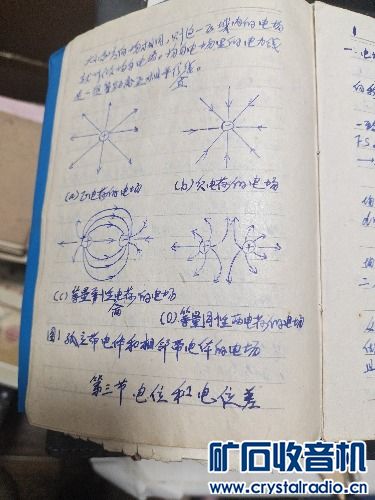 大小和方向均相同,则这一区域内的电场
就叫做均匀电场。均匀电场里的电力线
是一组等距离互相平行线。
直
(a)正电荷的电场
(b)负电荷的电场
(c)等量异性电荷的电场
(d)等量同性两电荷的电场
图1 孤立带电体和相邻带电体的电场
第三节 电位和电位差
矿石收音机
www.crystalradio.cn